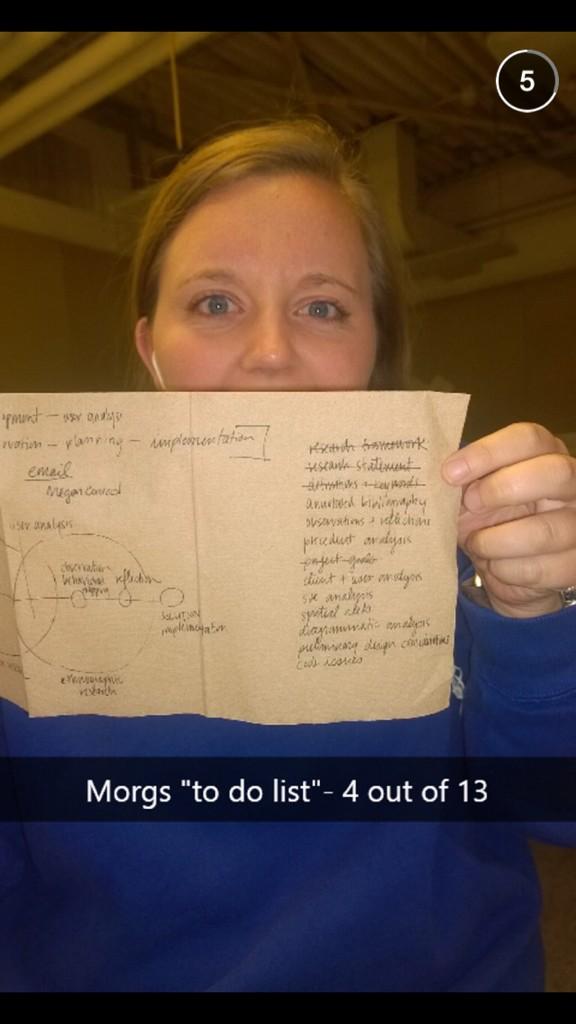 5
user analysis
planning — implementation
email
user analysis
observation
behavioral
mapping
reflection
solution
implementation
ethnographic
research
research framework
research statement
definitions + keywords
annotated bibliography
observations + reflections
precedent analysis
project goals
client + user analysis
site analysis
spatial
diagrammatic analysis
preliminary design considerations
code issues
Morgs "to do list"- 4 out of 13